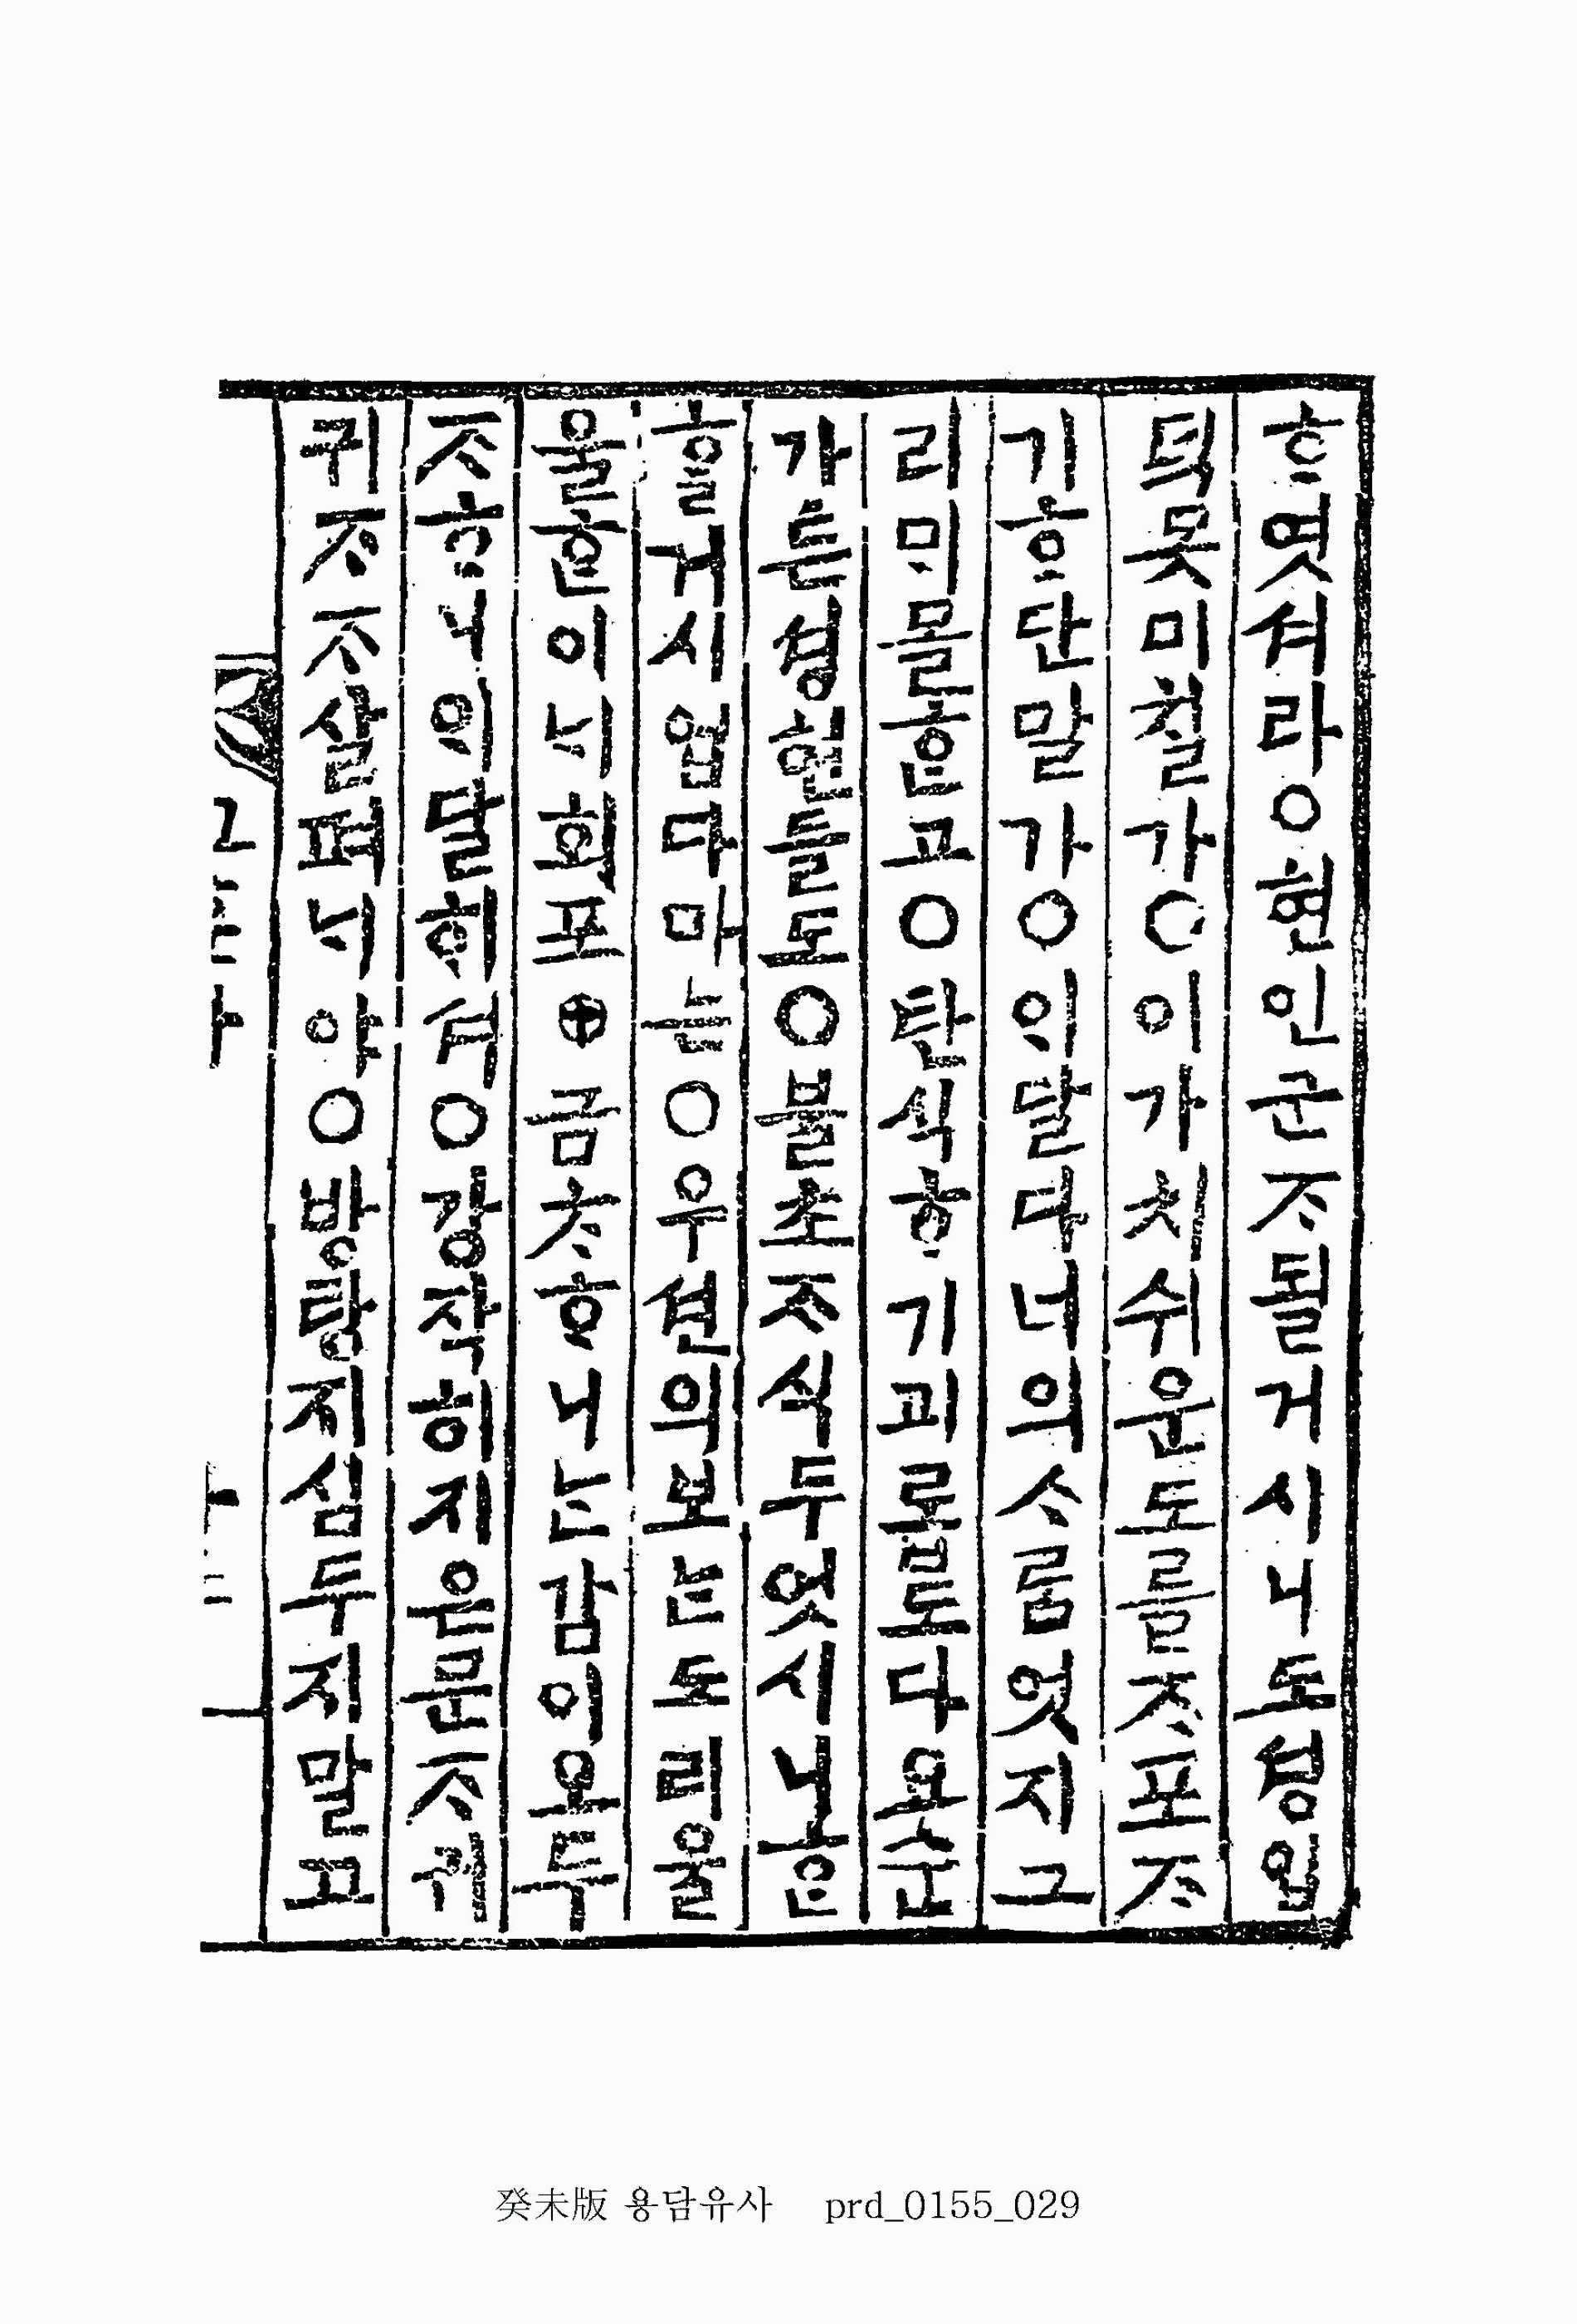 ᄒᆞ엿셔라○현인군ᄌᆞ될거시니도셩입
덕못미칠가○이가치쉬운도를ᄌᆞ포ᄌᆞ
기ᄒᆞ단말가○ᄋᆡ달다너의ᄉᆞ룸엇지그
리ᄆᆡ몰ᄒᆞᆫ고○탄식ᄒᆞ기괴롭도다요순
가튼셩현들도○불초ᄌᆞ식두엇시니ᄒᆞᆫ
ᄒᆞᆯ거시업다마는○우션의보ᄂᆞᆫ도리울
울ᄒᆞᆫ이ᄂᆡ회포⊕금ᄎᆞᄒᆞ니ᄂᆞᆫ감이오두
ᄌᆞᄒᆞ니ᄋᆡ달ᄒᆡ셔○강작히지은문ᄌᆞ귀
귀ᄌᆞᄌᆞ살펴ᄂᆡ야○방탕지심두지말고
癸未版 용담유사 prd_0155_029